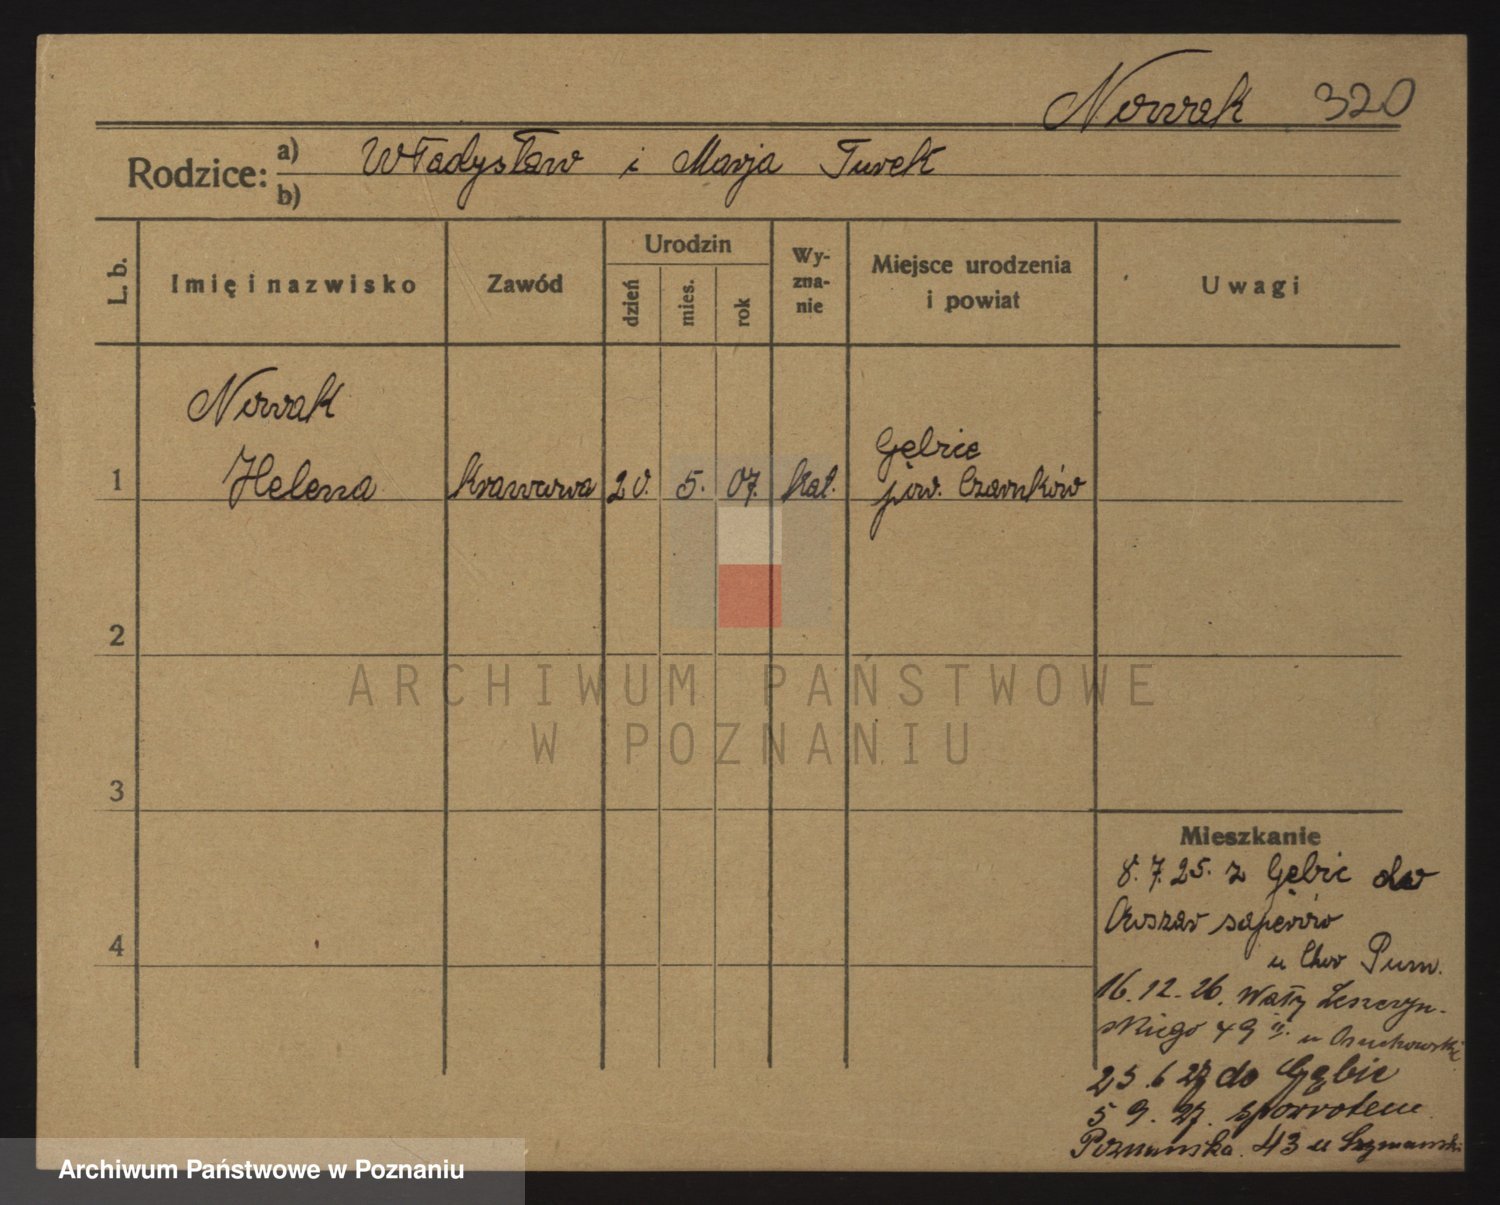 Nowak 320
Rodzice: a) Władysław i Marja Turek
b)
L. b.
Imię i nazwisko
Zawód
Urodzin
dzień
mies.
rok
Wy-
zna-
nie
Miejsce urodzenia
i powiat
Uwagi
Nowak
1 Helena krawcowa 20. 5. 07. kat. Gębice
pow. Czarnków
2
3
4
Mieszkanie
8.7.25. z Gębic
saperów
u
16.12.26. Wały Leszczyń-
skiego 49 II. u Osuchowski
25.6.27 do Gębic
5 9. 27. spowrotem
Poznańska 43 u Szymański
ARCHIWUM PAŃSTWOWE
W POZNANIU
Archiwum Państwowe w Poznaniu